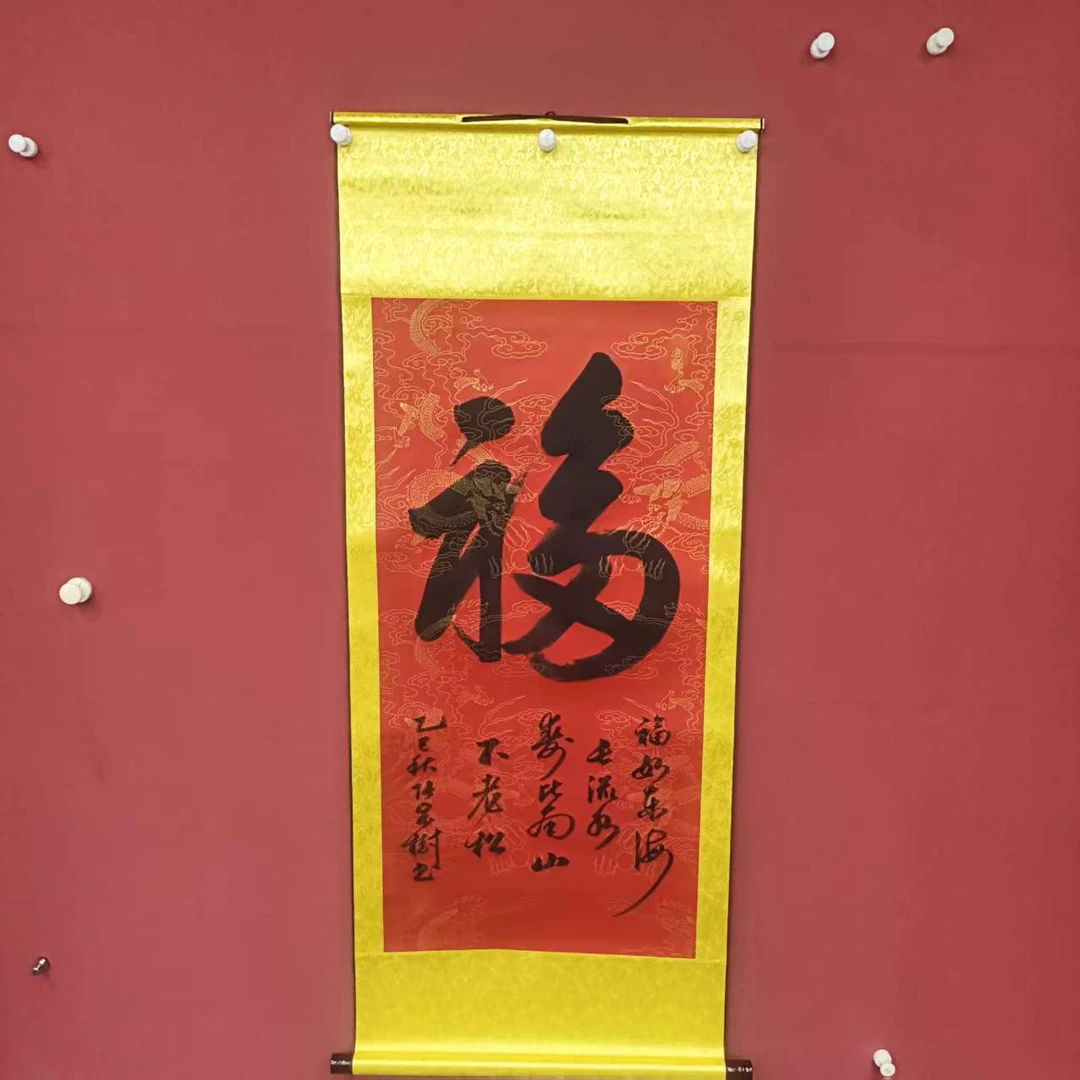 福
福如东海
长流水
寿比南山
不老松
乙巳秋张 树书